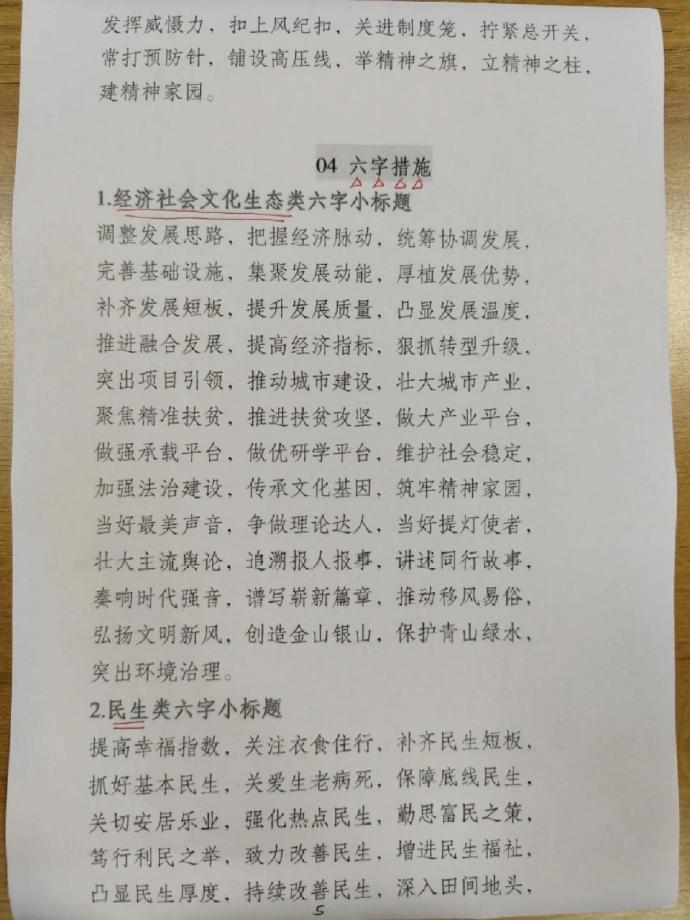 发挥威慑力，扣上风纪扣，关进制度笼，拧紧总开关，
常打预防针，铺设高压线，举精神之旗，立精神之柱，
建精神家园。
04 六字措施
1.经济社会文化生态类六字小标题
调整发展思路，把握经济脉动，统筹协调发展，
完善基础设施，集聚发展动能，厚植发展优势，
补齐发展短板，提升发展质量，凸显发展温度，
推进融合发展，提高经济指标，狠抓转型升级，
突出项目引领，推动城市建设，壮大城市产业，
聚焦精准扶贫，推进扶贫攻坚，做大产业平台，
做强承载平台，做优研学平台，维护社会稳定，
加强法治建设，传承文化基因，筑牢精神家园，
当好最美声音，争做理论达人，当好提灯使者，
壮大主流舆论，追溯报人报事，讲述同行故事，
奏响时代强音，谱写崭新篇章，推动移风易俗，
弘扬文明新风，创造金山银山，保护青山绿水，
突出环境治理。
2.民生类六字小标题
提高幸福指数，关注衣食住行，补齐民生短板，
抓好基本民生，关爱生老病死，保障底线民生，
关切安居乐业，强化热点民生，勤思富民之策，
笃行利民之举，致力改善民生，增进民生福祉，
凸显民生厚度，持续改善民生，深入田间地头，
5